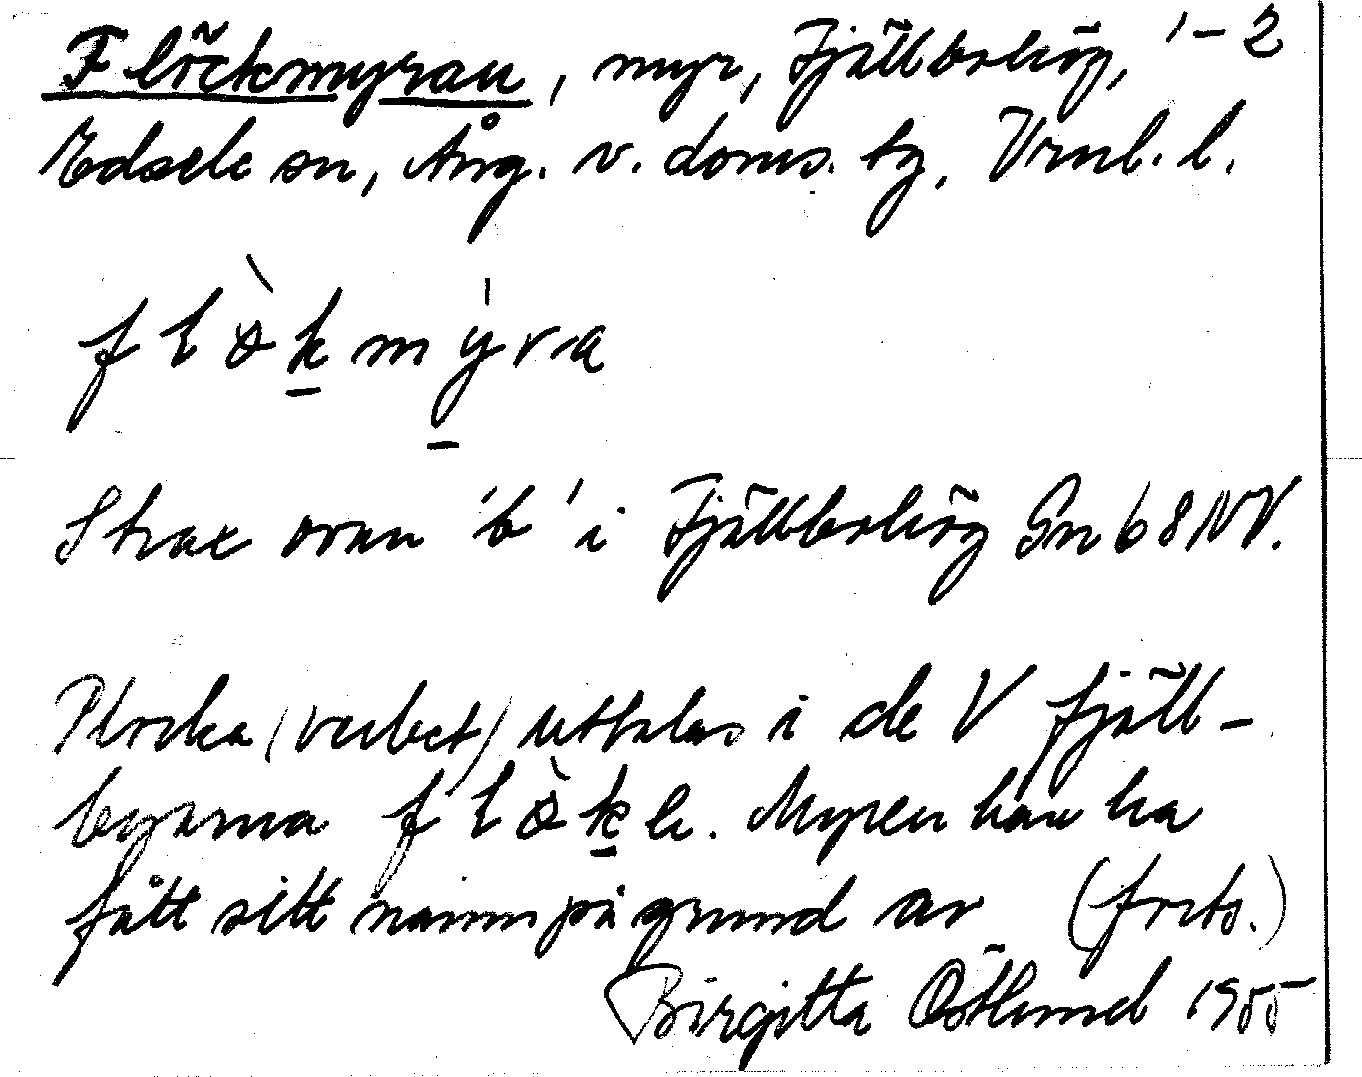 Flöckmyran, myr, Fjällbokög, 1–2
Edsele sn, Ång. v. doms. tg, Vrnl. l.
f l ö̀ k m y̍ r a
Strax ovan 'b' i Fjällbokög Gn 68 NV.
Plocka (verbet) uttalas i de V fjäll-
byarna f l ö̀ k e. Myren kan ha
fått sitt namn på grund av (forts.)
Birgitta Östlund 1955